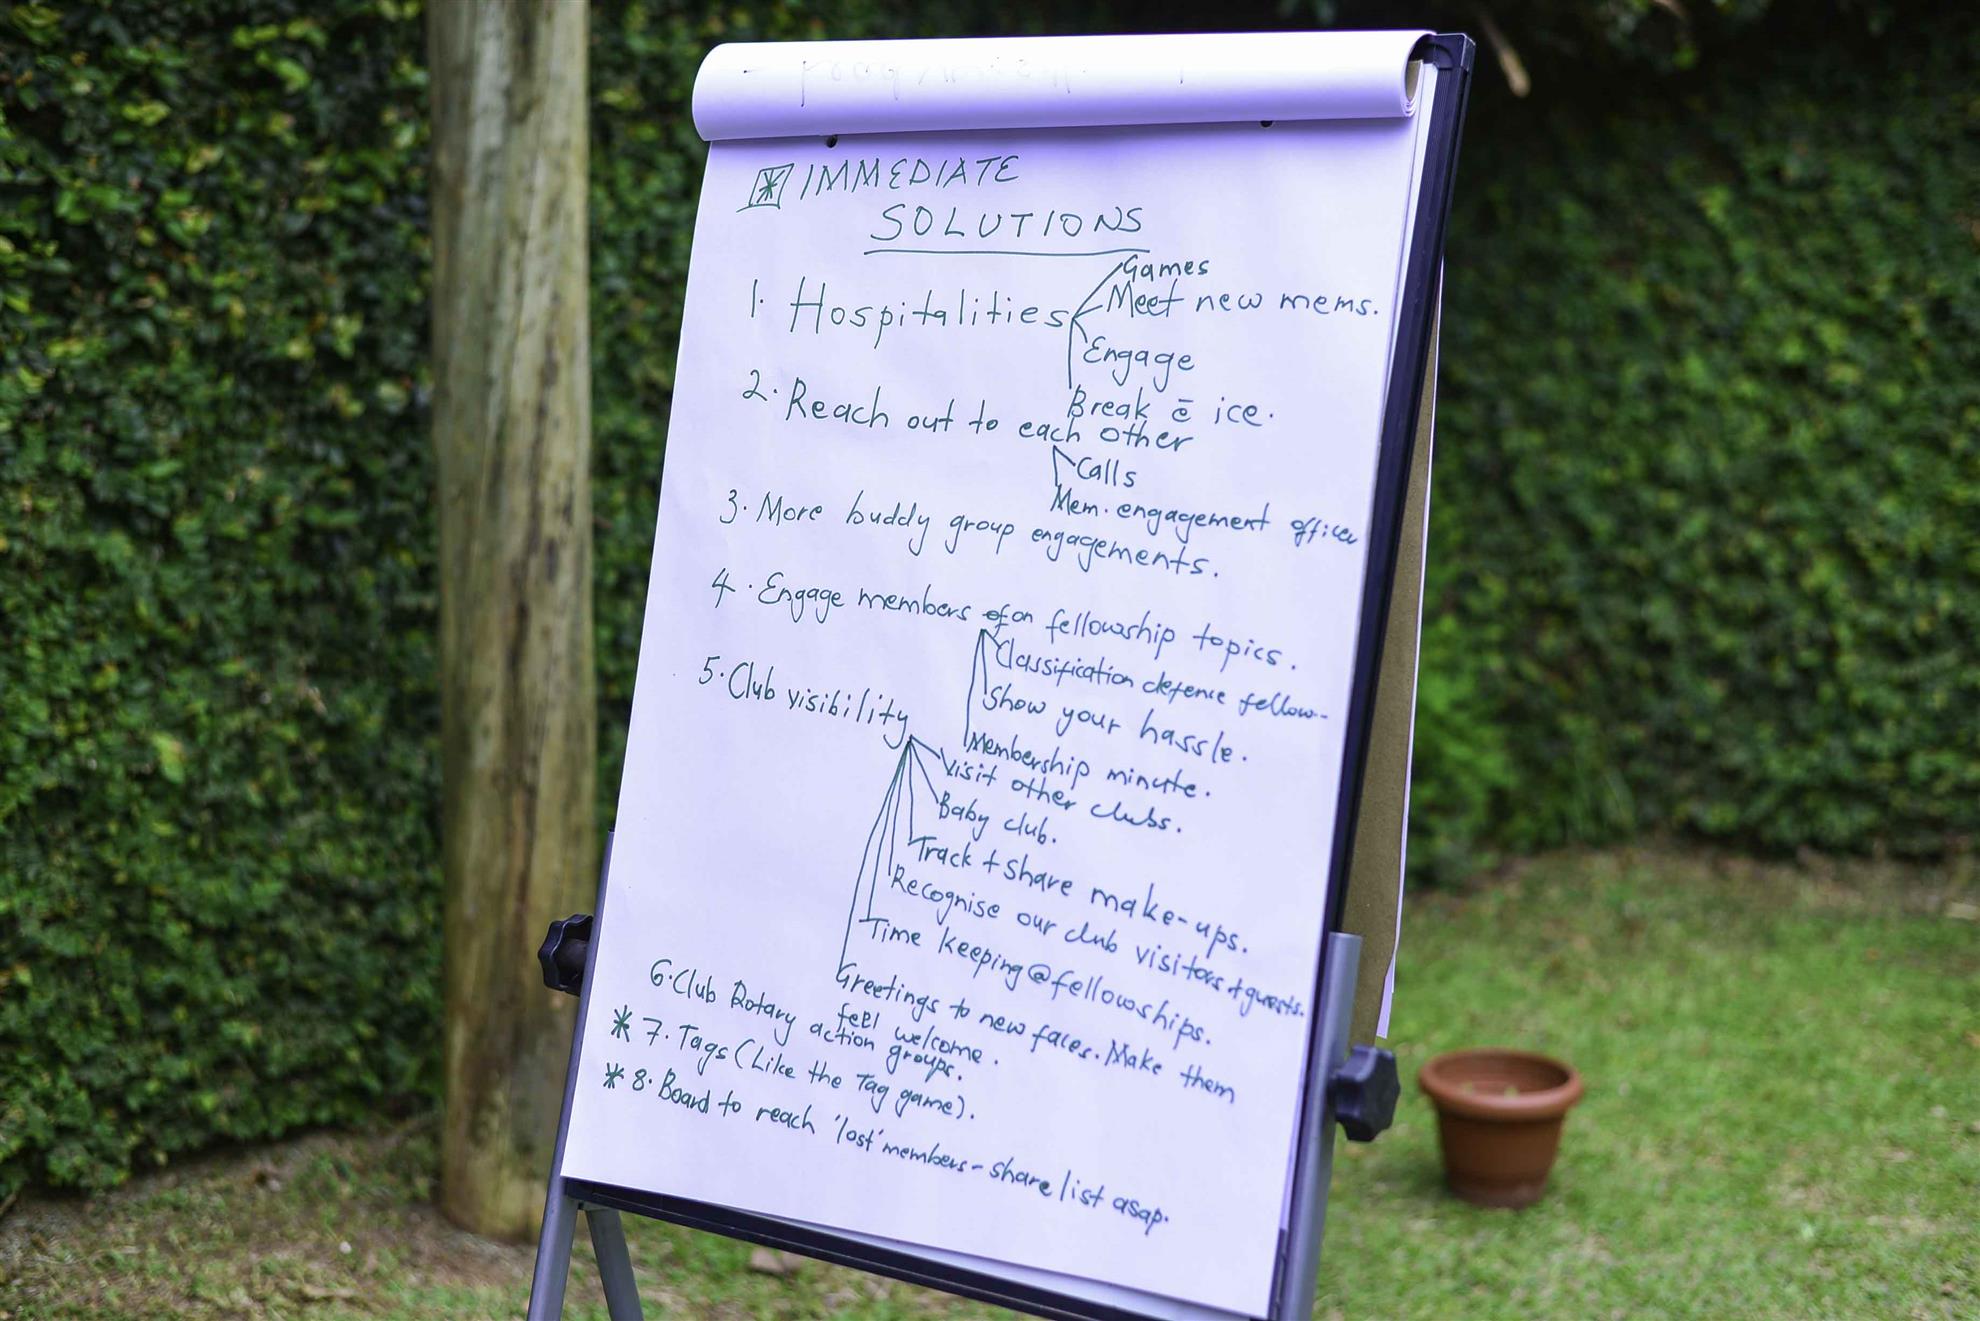 * IMMEDIATE
SOLUTIONS
1. Hospitalities
Games
Meet new mems.
Engage
Break ē ice.
2. Reach out to each other
Calls
Mem. engagement officer
3. More buddy group engagements.
4. Engage members of on fellowship topics.
Classification defence fellow--
Show your hassle.
Membership minute.
5. Club visibility
Visit other clubs.
Baby club.
Track + share make-ups.
Recognise our club visitors + guests.
Time keeping @ fellowships.
Greetings to new faces. Make them
feel welcome.
6. Club Rotary action groups.
* 7. Tags (Like the Tag game).
* 8. Board to reach 'lost' members - share list asap.